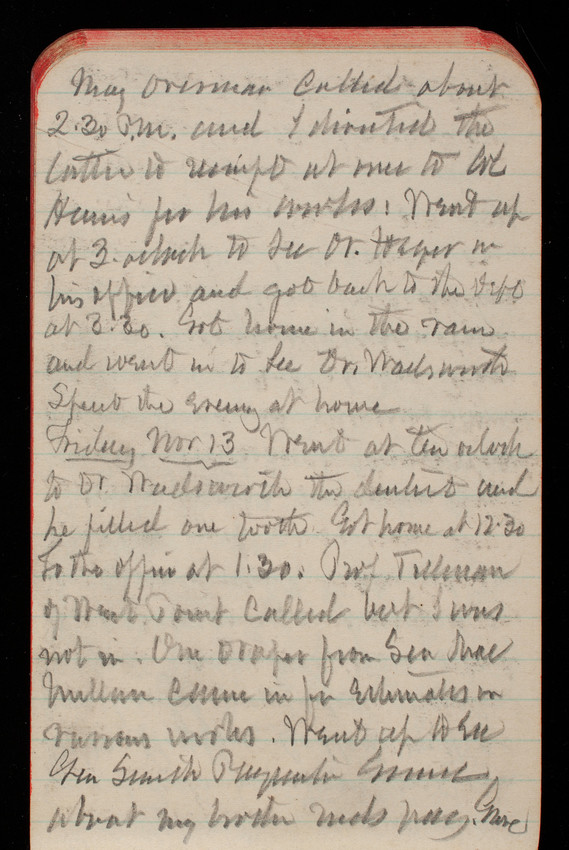 Maj Overman called about
2.30 P.M. and I directed the
latter to at once to Col
Hains for his works. Went up
at 3. oclock to see Dr. Hager in
his office and got back to the Dept
at 3.30. Got home in the rain
and went in to see Dr. Wadsworth
Spent the evening at home
Friday Nov 13 Went at ten oclock
to Dr. Wadsworth the dentist and
he filled one tooth. Got home at 12.30
To the office at 1.30. Prof Tillman
of West Point called but I was
not in. One Draper from Sen Mac
Millan came in for Estimates on
various works. Went up to see
Gen Smith Paymaster General
about my brother neds pay. Gave